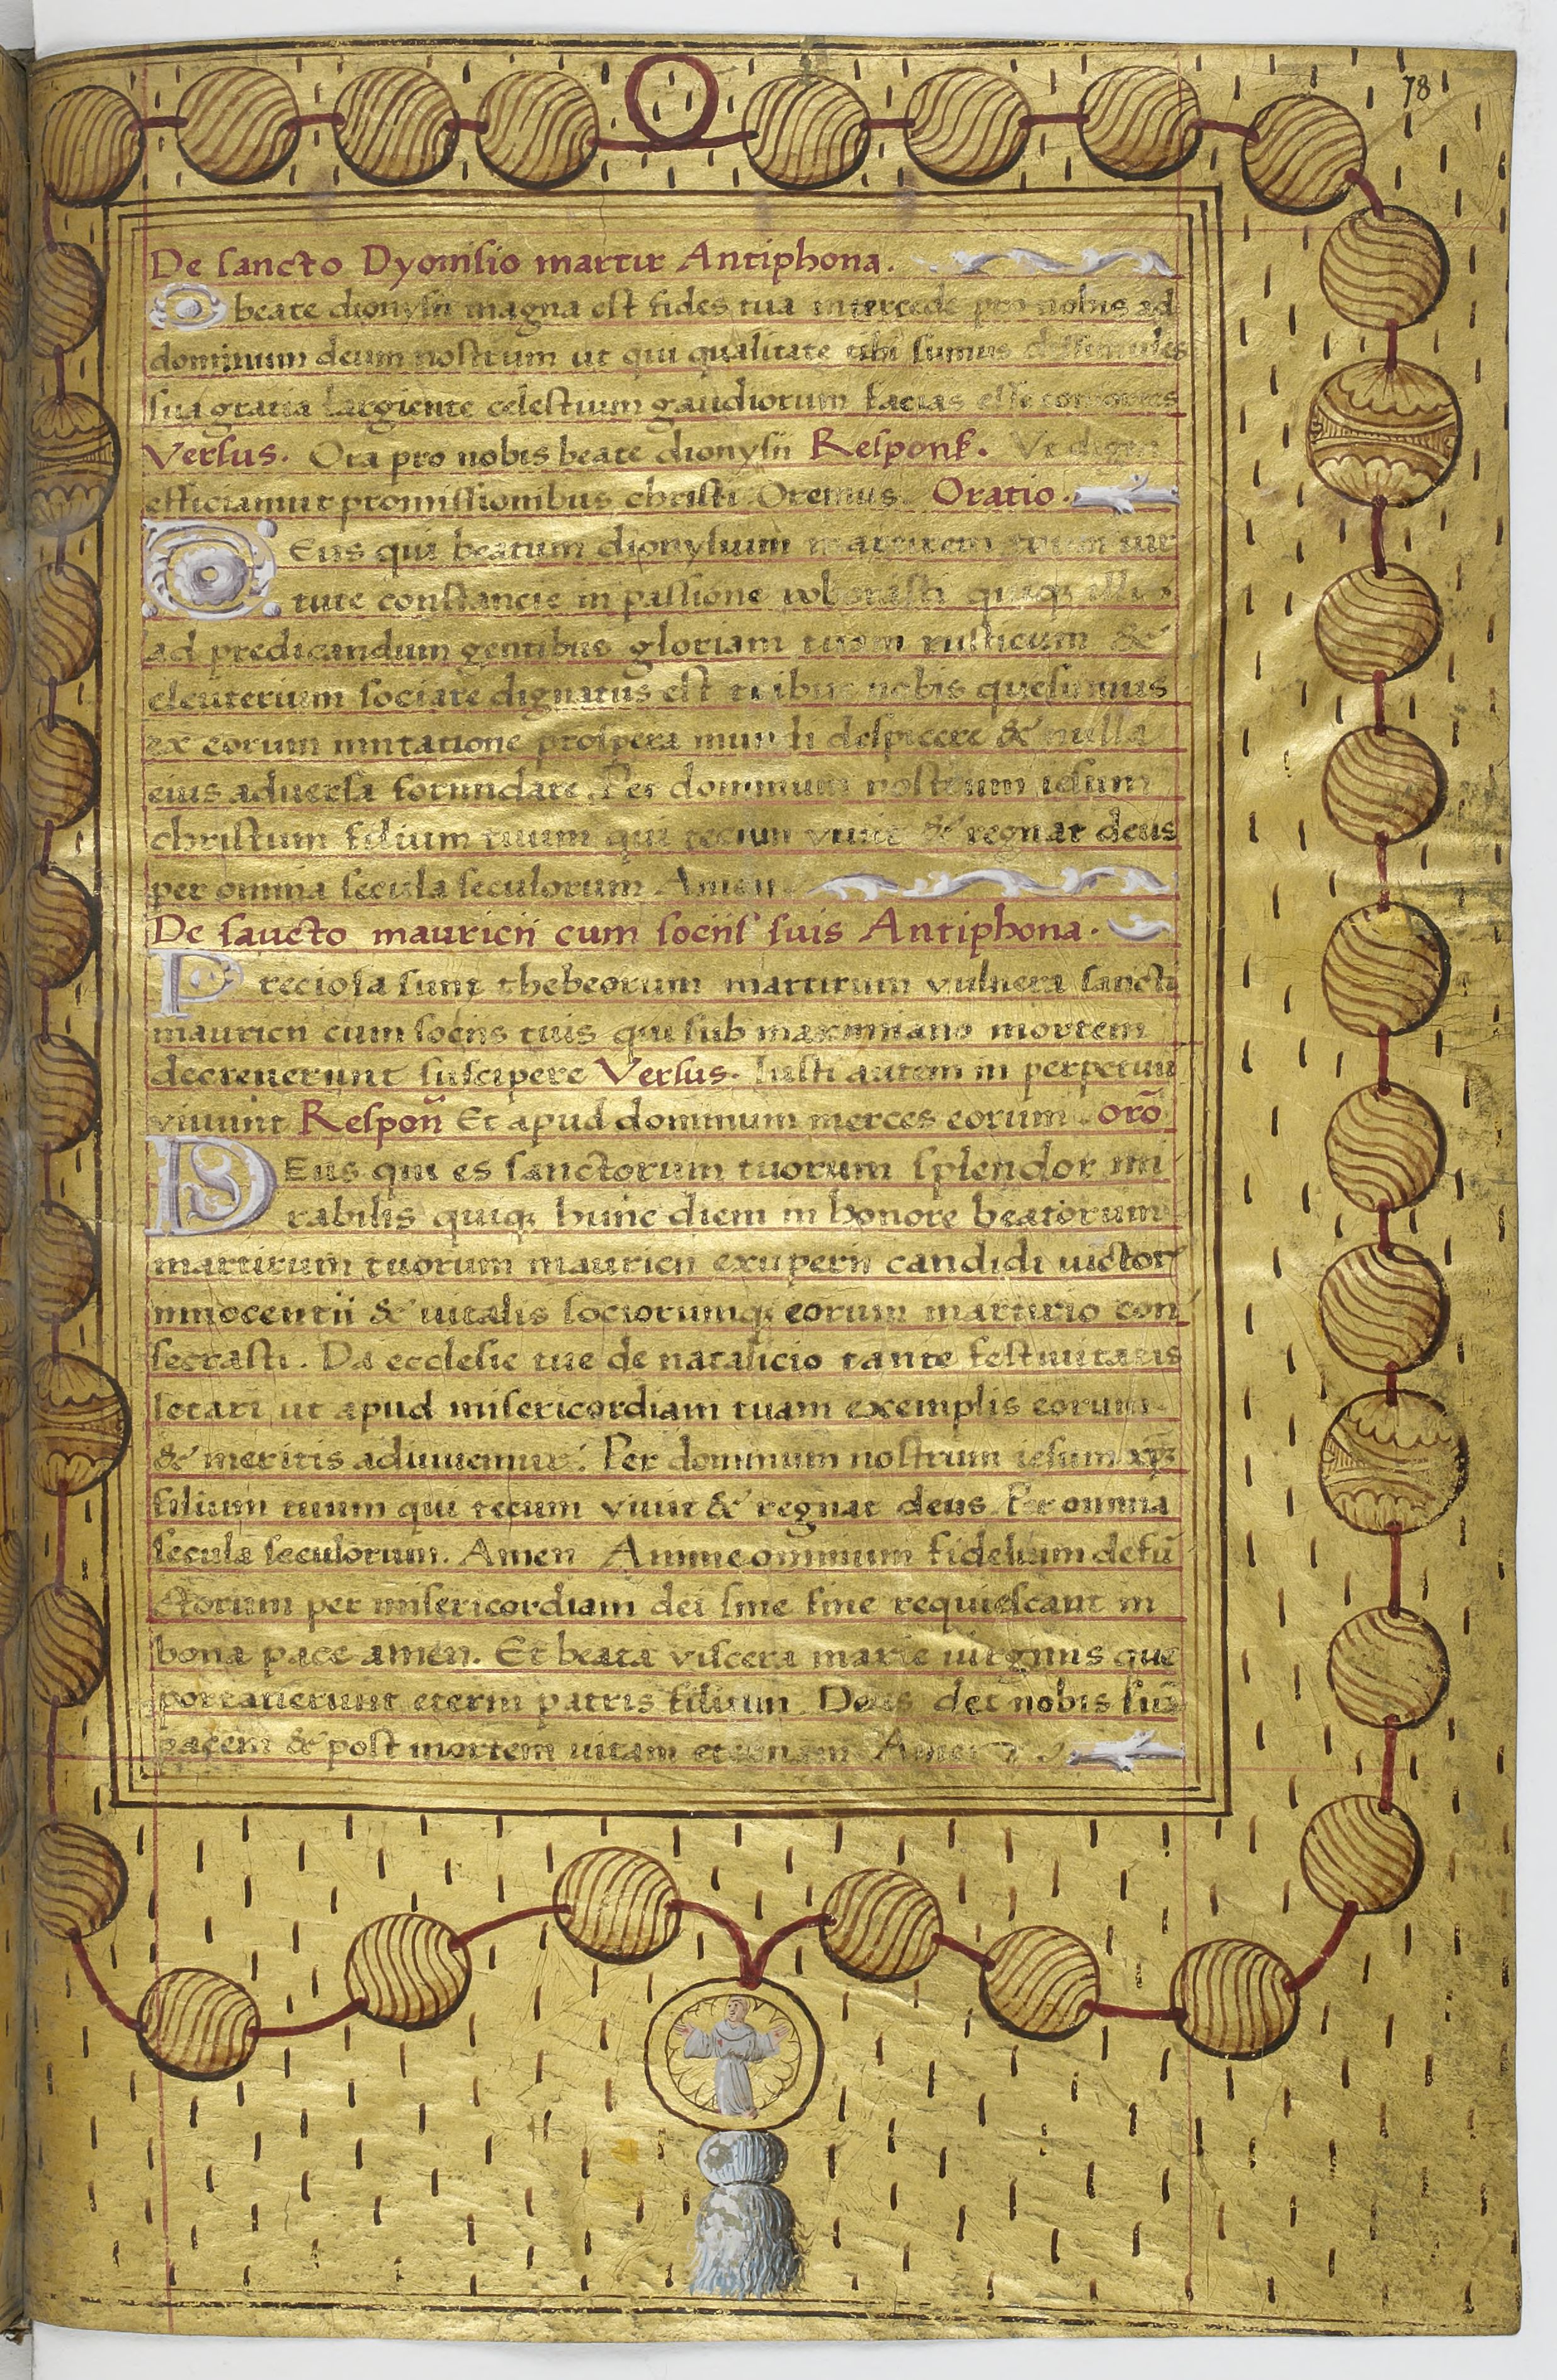 78
De sancto Dyonisio martir Antiphona.
O beate dionysii magna est fides tua intercede pro nobis ad
dominum deum nostrum ut qui qualitate tibi sumus dissimiles
sua gratia largiente celestium gaudiorum facias esse consortes
Versus. Ora pro nobis beate dionysii Respons. Vt digni
efficiamur promissionibus christi Oremus. Oratio.
Deus qui beatum dionysium martirem tuum uir
tute constancie in passione roborasti quiq; illi
ad predicandum gentibus gloriam tuam rusticum &
eleuterium sociare dignatus est tribue nobis quesumus
ex eorum imitatione prospera mundi despicere & nulla
eius aduersa formidare. Per dominum nostrum iesum
christum filium tuum qui tecum viuit & regnat deus
per omnia secula seculorum Amen.
De saucto mauricii cum sociis suis Antiphona.
Preciosa sunt thebeorum martirum vulnera sancti
mauricii cum sociis tuis qui sub maximiano mortem
decreuerunt suscipere Versus. Iusti autem in perpetuū
viuunt Respoñ Et apud dominum merces eorum. orō
Deus qui es sanctorum tuorum splendor mi
rabilis quiq; hunc diem in honore beatorum
martirum tuorum mauricii exuperii candidi uictor
innocentii & uitalis sociorumq; eorum martirio con
secrasti. Da ecclesie tue de natalicio tante festiuitatis
letari ut apud misericordiam tuam exemplis eorum
& meritis adiuuemur. Per dominum nostrum iesum xp̄m
filium tuum qui tecum viuit & regnat deus Per omnia
secula seculorum. Amen Anime omnium fidelium defū
ctorum per misericordiam dei sine fine requiescant in
bona pace amen. Et beata viscera marie uirginis que
portauerunt eterni patris filium. Deus det nobis suā
pacem & post mortem uitam eternam Amen